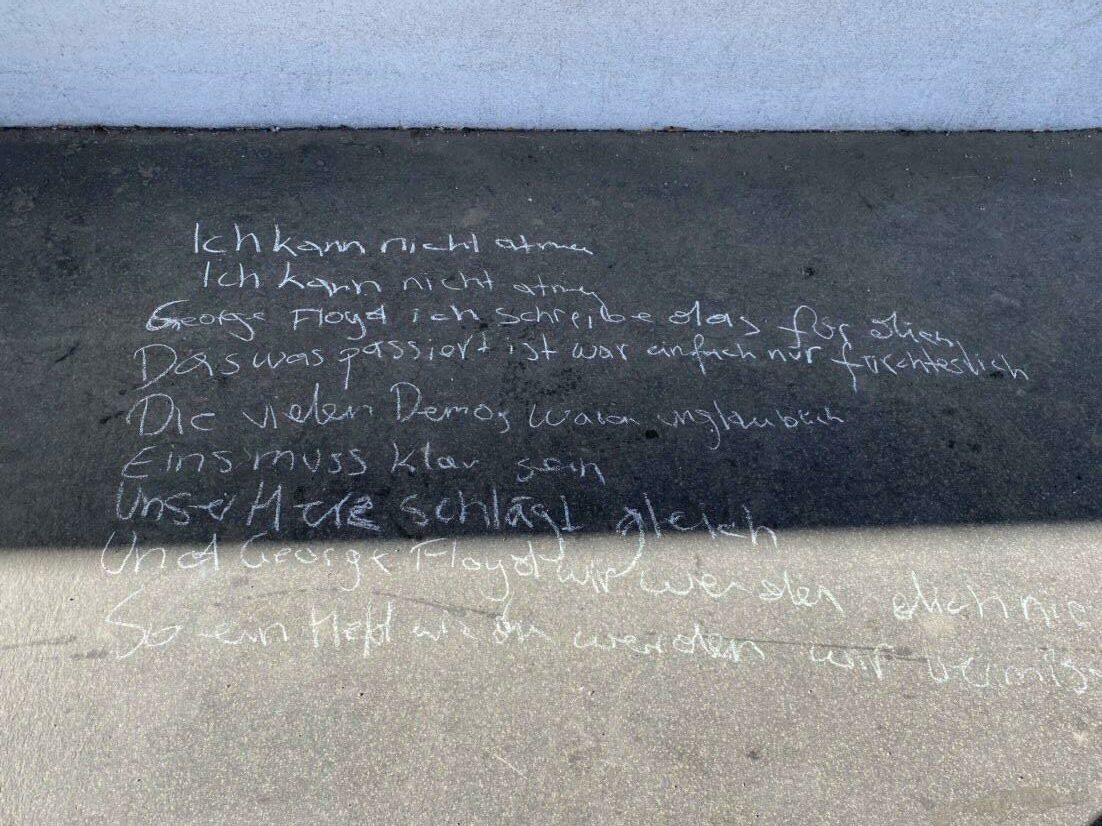 Ich kann nicht atmen
Ich kann nicht atmen
George Floyd ich schreibe das für dich
Das was passiert ist war einfach nur fürchterlich
Die vielen Demos waren unglaublich
Eins muss klar sein
Unser Herz schlägt gleich
Und George Floyd wir werden dich nie
So ein Held wie du werden wir vermiss